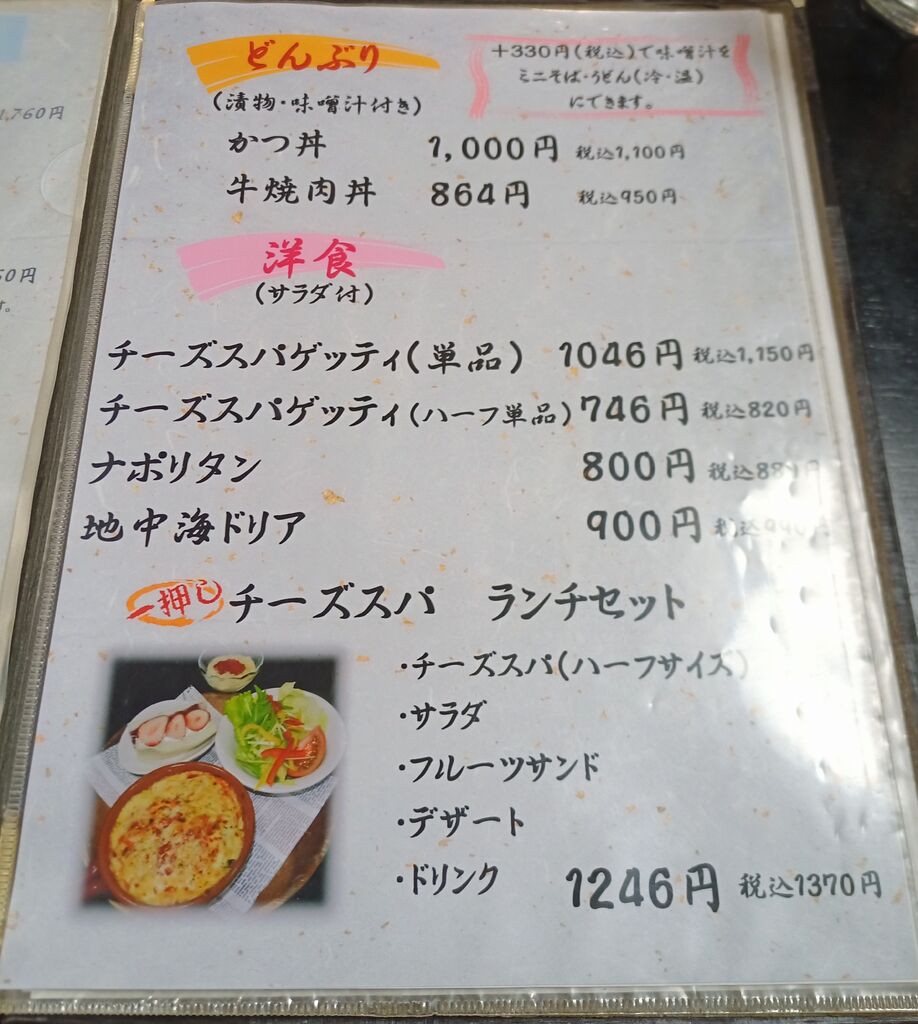 どんぶり
(漬物・味噌汁付き)
+330円(税込)で味噌汁を
ミニそば・うどん(冷・温)
にできます。
かつ丼 1,000円 税込1,100円
牛焼肉丼 864円 税込950円
洋食
(サラダ付)
チーズスパゲッティ(単品) 1046円 税込1,150円
チーズスパゲッティ(ハーフ単品) 746円 税込820円
ナポリタン 800円
地中海ドリア 900円
一押し チーズスパ ランチセット
・チーズスパ(ハーフサイズ)
・サラダ
・フルーツサンド
・デザート
・ドリンク 1246円 税込1370円
1,760円